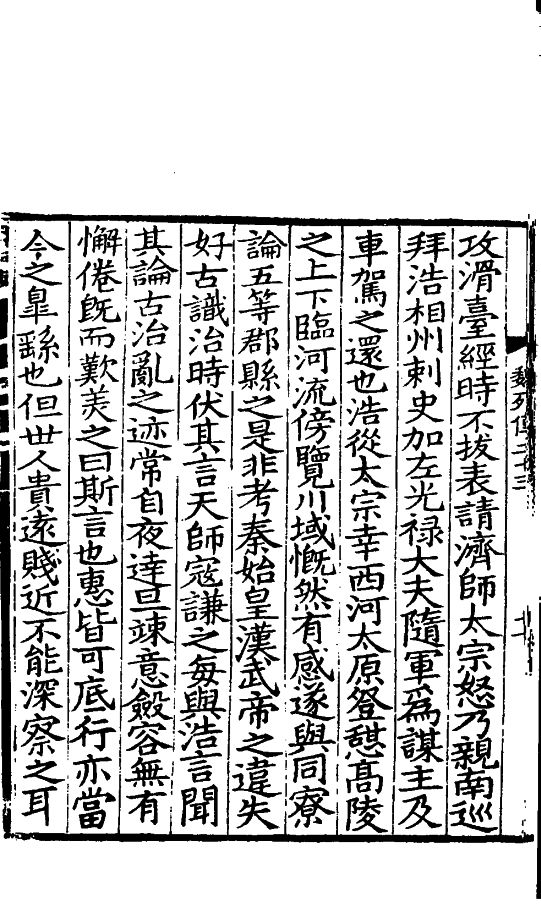 攻滑臺經時不拔表請濟師太宗怒乃親南巡
拜浩相州刺史加左光祿大夫隨軍爲謀主及
車駕之還也浩從太宗幸西河太原登憇髙陵
之上下臨河流傍覽川域慨然有感遂與同寮
論五等郡縣之是非考秦始皇漢武帝之違失
好古識治時伏其言天師寇謙之每與浩言聞
其論古治亂之迹常自夜達旦竦意斂容無有
懈倦旣而歎美之曰斯言也惠皆可底行亦當
今之臯繇也但世人貴遠賤近不能深察之耳
魏列傳二十三